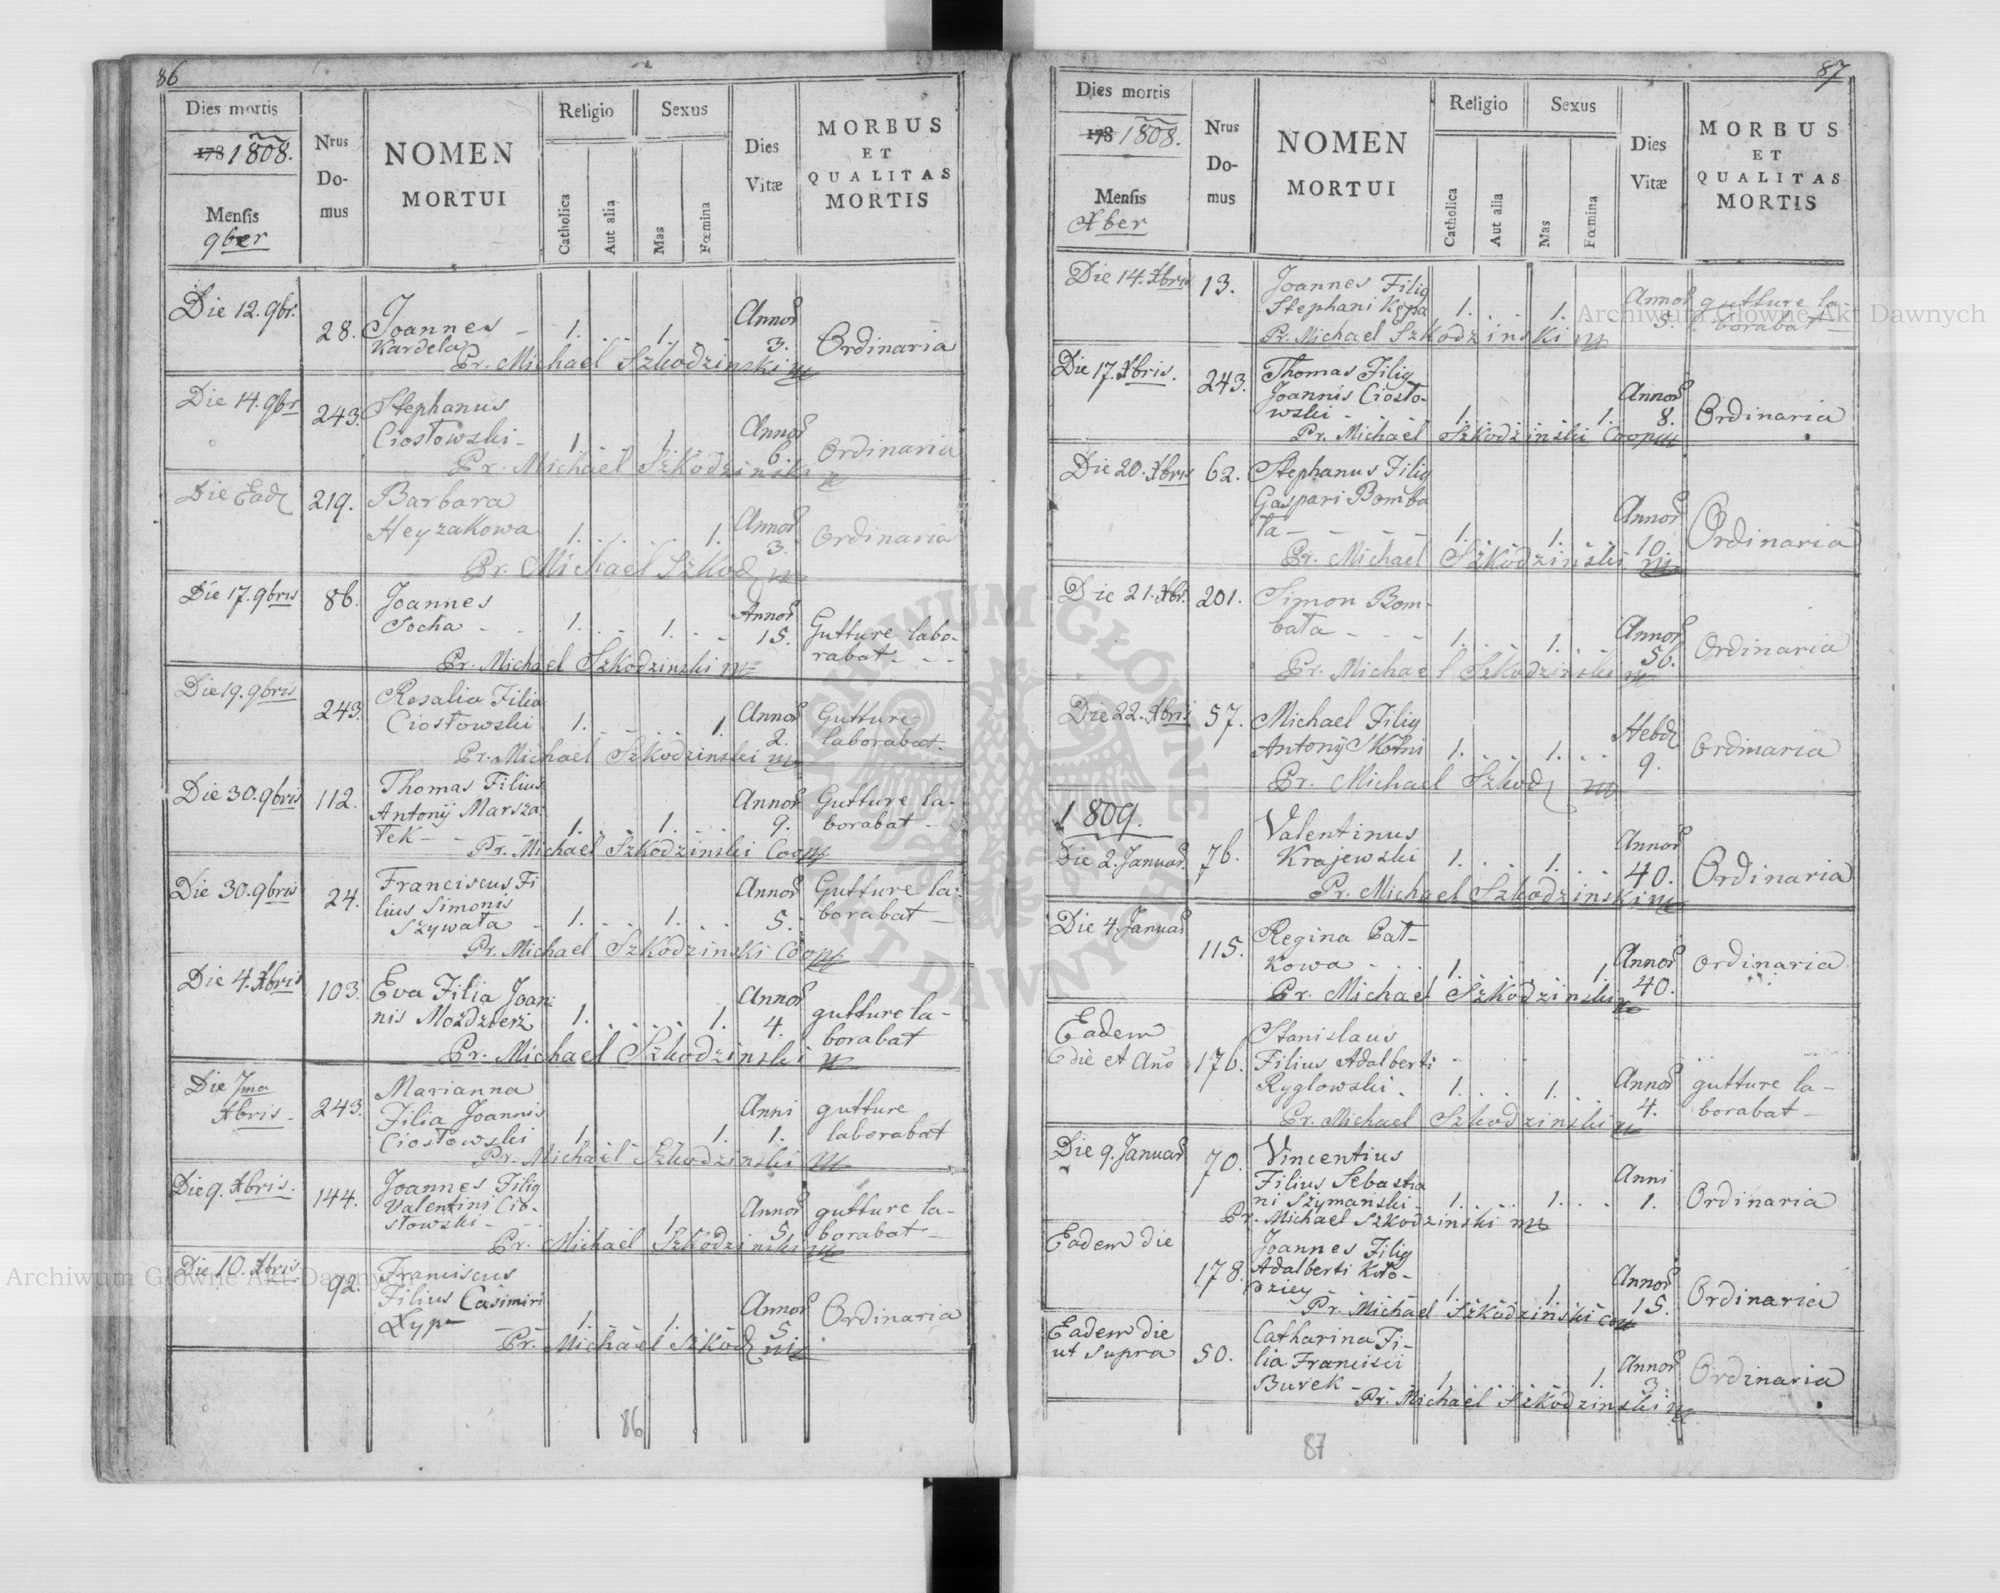 86
Dies mortis
178 1808.
Mensis
9ber
Nrus
Do-
mus
NOMEN
MORTUI
Religio
Catholica
Aut alia
Sexus
Mas
Fœmina
Dies
Vitæ
MORBUS
ET
QUALITAS
MORTIS
Die 12. 9br. 28. Joannes - 1. 1. Annor
Kardela 3. Ordinaria
Pr. Michael Szkodzinski
Die 14. 9br 243. Stephanus Annor
Ciosłowski - 1. 1. 6. Ordinaria
Pr. Michael Szkodzinski
Die Ead 219. Barbara Annor
Heyzakowa 1. 1. 3. Ordinaria
Pr. Michael Szkod
Die 17. 9bris 86. Joannes Annor
Socha 1. 1. 15. Gutture labo-
rabat
Pr. Michael Szkodzinski
Die 19. 9bris 243. Rosalia Filia Annor Gutture
Ciosłowski 1. 1. 2. laborabat
Pr. Michael Szkodzinski
Die 30. 9bris 112. Thomas Filius
Antonij Marsza- Annor Gutture la-
łek 1. 1. 9. borabat
Pr. Michael Szkodzinski Coop
Die 30. 9bris 24. Franciscus Fi
lius Simonis Annor Gutture la-
Szywała 1. 1. 5. borabat
Pr. Michael Szkodzinski Coop
Die 4. Xbris 103. Eva Filia Joan- Annor gutture la-
nis Mozdzierz 1. 1. 4. borabat
Pr. Michael Szkodzinski
Die 7ma 243. Marianna
Xbris. Filia Joannis Anni gutture
Ciosłowski 1. 1. 1. laborabat
Pr. Michael Szkodzinski
Die 9. Xbris. 144. Joannes Filig
Valentini Cio- Annor gutture la-
słowski 1. 1. 5. borabat
Pr. Michael Szkodzinski
Die 10. Xbris 92. Franciscus
Filius Casimiri Annor Ordinaria
1. 1. 5.
Pr. Michael Szkod
86
87
Dies mortis
178 1808.
Mensis
Xber
Nrus
Do-
mus
NOMEN
MORTUI
Religio
Catholica
Aut alia
Sexus
Mas
Fœmina
Dies
Vitæ
MORBUS
ET
QUALITAS
MORTIS
Die 14. Xbris 13. Joannes Filig Annor gutture la-
Stephani Kępa 1. 1. 5. borabat
Pr. Michael Szkodzinski
Die 17. Xbris. 243. Thomas Filig
Joannis Ciosło- Annor
wski - 1. 1. 8. Ordinaria
Pr. Michael Szkodzinski Coop
Die 20. Xbris 62. Stephanus Filig
Gaspari Bomba Annor
ła - 1. 1. 10. Ordinaria
Pr. Michael Szkodzinski
Die 21. Xbr. 201. Simon Bom- Annor
bała 1. 1. 56. Ordinaria
Pr. Michael Szkodzinski
Die 22. Xbris 57. Michael Filig Hebd
Antonij 1. 1. 9. Ordinaria
Pr. Michael Szkod
1809.
Die 2. Januar. 76. Valentinus Annor
Krajewski 1. 1. 40. Ordinaria
Pr. Michael Szkodzinski
Die 4. Januar 115. Regina Bat- Annor
kowa 1. 1. 40. Ordinaria
Pr. Michael Szkodzinski
Eadem Stanislaus
die et Ano 176. Filius Adalberti Annor gutture la-
Ryglowski 1. 1. 4. borabat
Pr. Michael Szkodzinski
Die 9. Januar 70. Vincentius
Filius Sebastia Anni
ni Szymański 1. 1. 1. Ordinaria
Pr. Michael Szkodzinski
Eadem die 178. Joannes Filig
Adalberti Koło- Annor
dziey 1. 1. 15. Ordinaria
Pr. Michael Szkodzinski Coo
Eadem die 50. Catharina Fi-
ut supra lia Francisci Annor
Burek 1. 1. 3. Ordinaria
Pr. Michael Szkodzinski
87
Archiwum Główne Akt Dawnych
Archiwum Główne Akt Dawnych
ARCHIWUM GŁÓWNE
AKT DAWNYCH